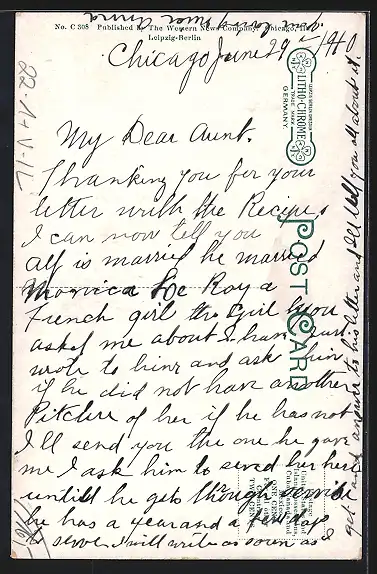 No. C 308 Published by The Western News Company, Chicago, Ill.
Leipzig-Berlin
Chicago June 29 - 1910
My Dear Aunt.
Thanking you for your
letter with the Recipes
I can now tell you
Alf is married he married
Monica Le Roy a
French girl the girl you
asked me about I have just
wrote to him and ask him
if he did not have another
Pitcture of her if he has not
I'll send you the one he gave
me I ask him to send her here
untill he gets though service
he has a year and a few days
to serve I will write as soon as I
get and answer to his letter and I'll tell you all about it.
your loving niece Anna
LITHO-CHROME
TRADE MARK
GERMANY.
POST CARD